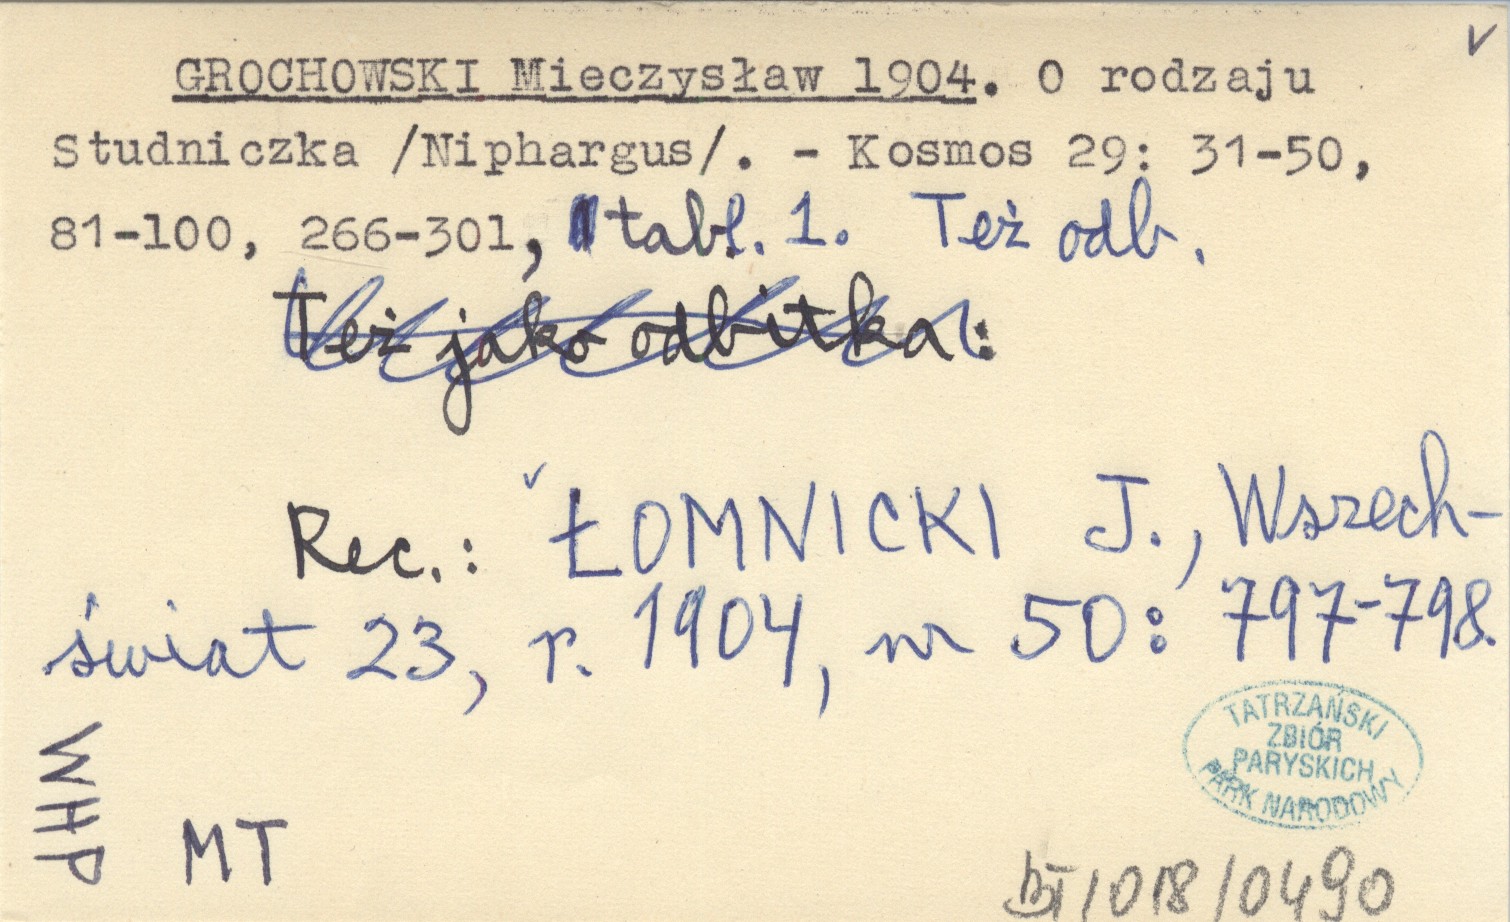 GROCHOWSKI Mieczysław 1904. O rodzaju
Studniczka /Niphargus/. - Kosmos 29: 31-50,
81-100, 266-301, tabl. 1. Też odb.
Też jako odbitka:
Rec.: ŁOMNICKI J., Wszech-
świat 23, r. 1904, nr 50: 797-798.
TATRZAŃSKI
ZBIÓR
PARYSKICH
PARK NARODOWY
WHP
MT
/018/0490